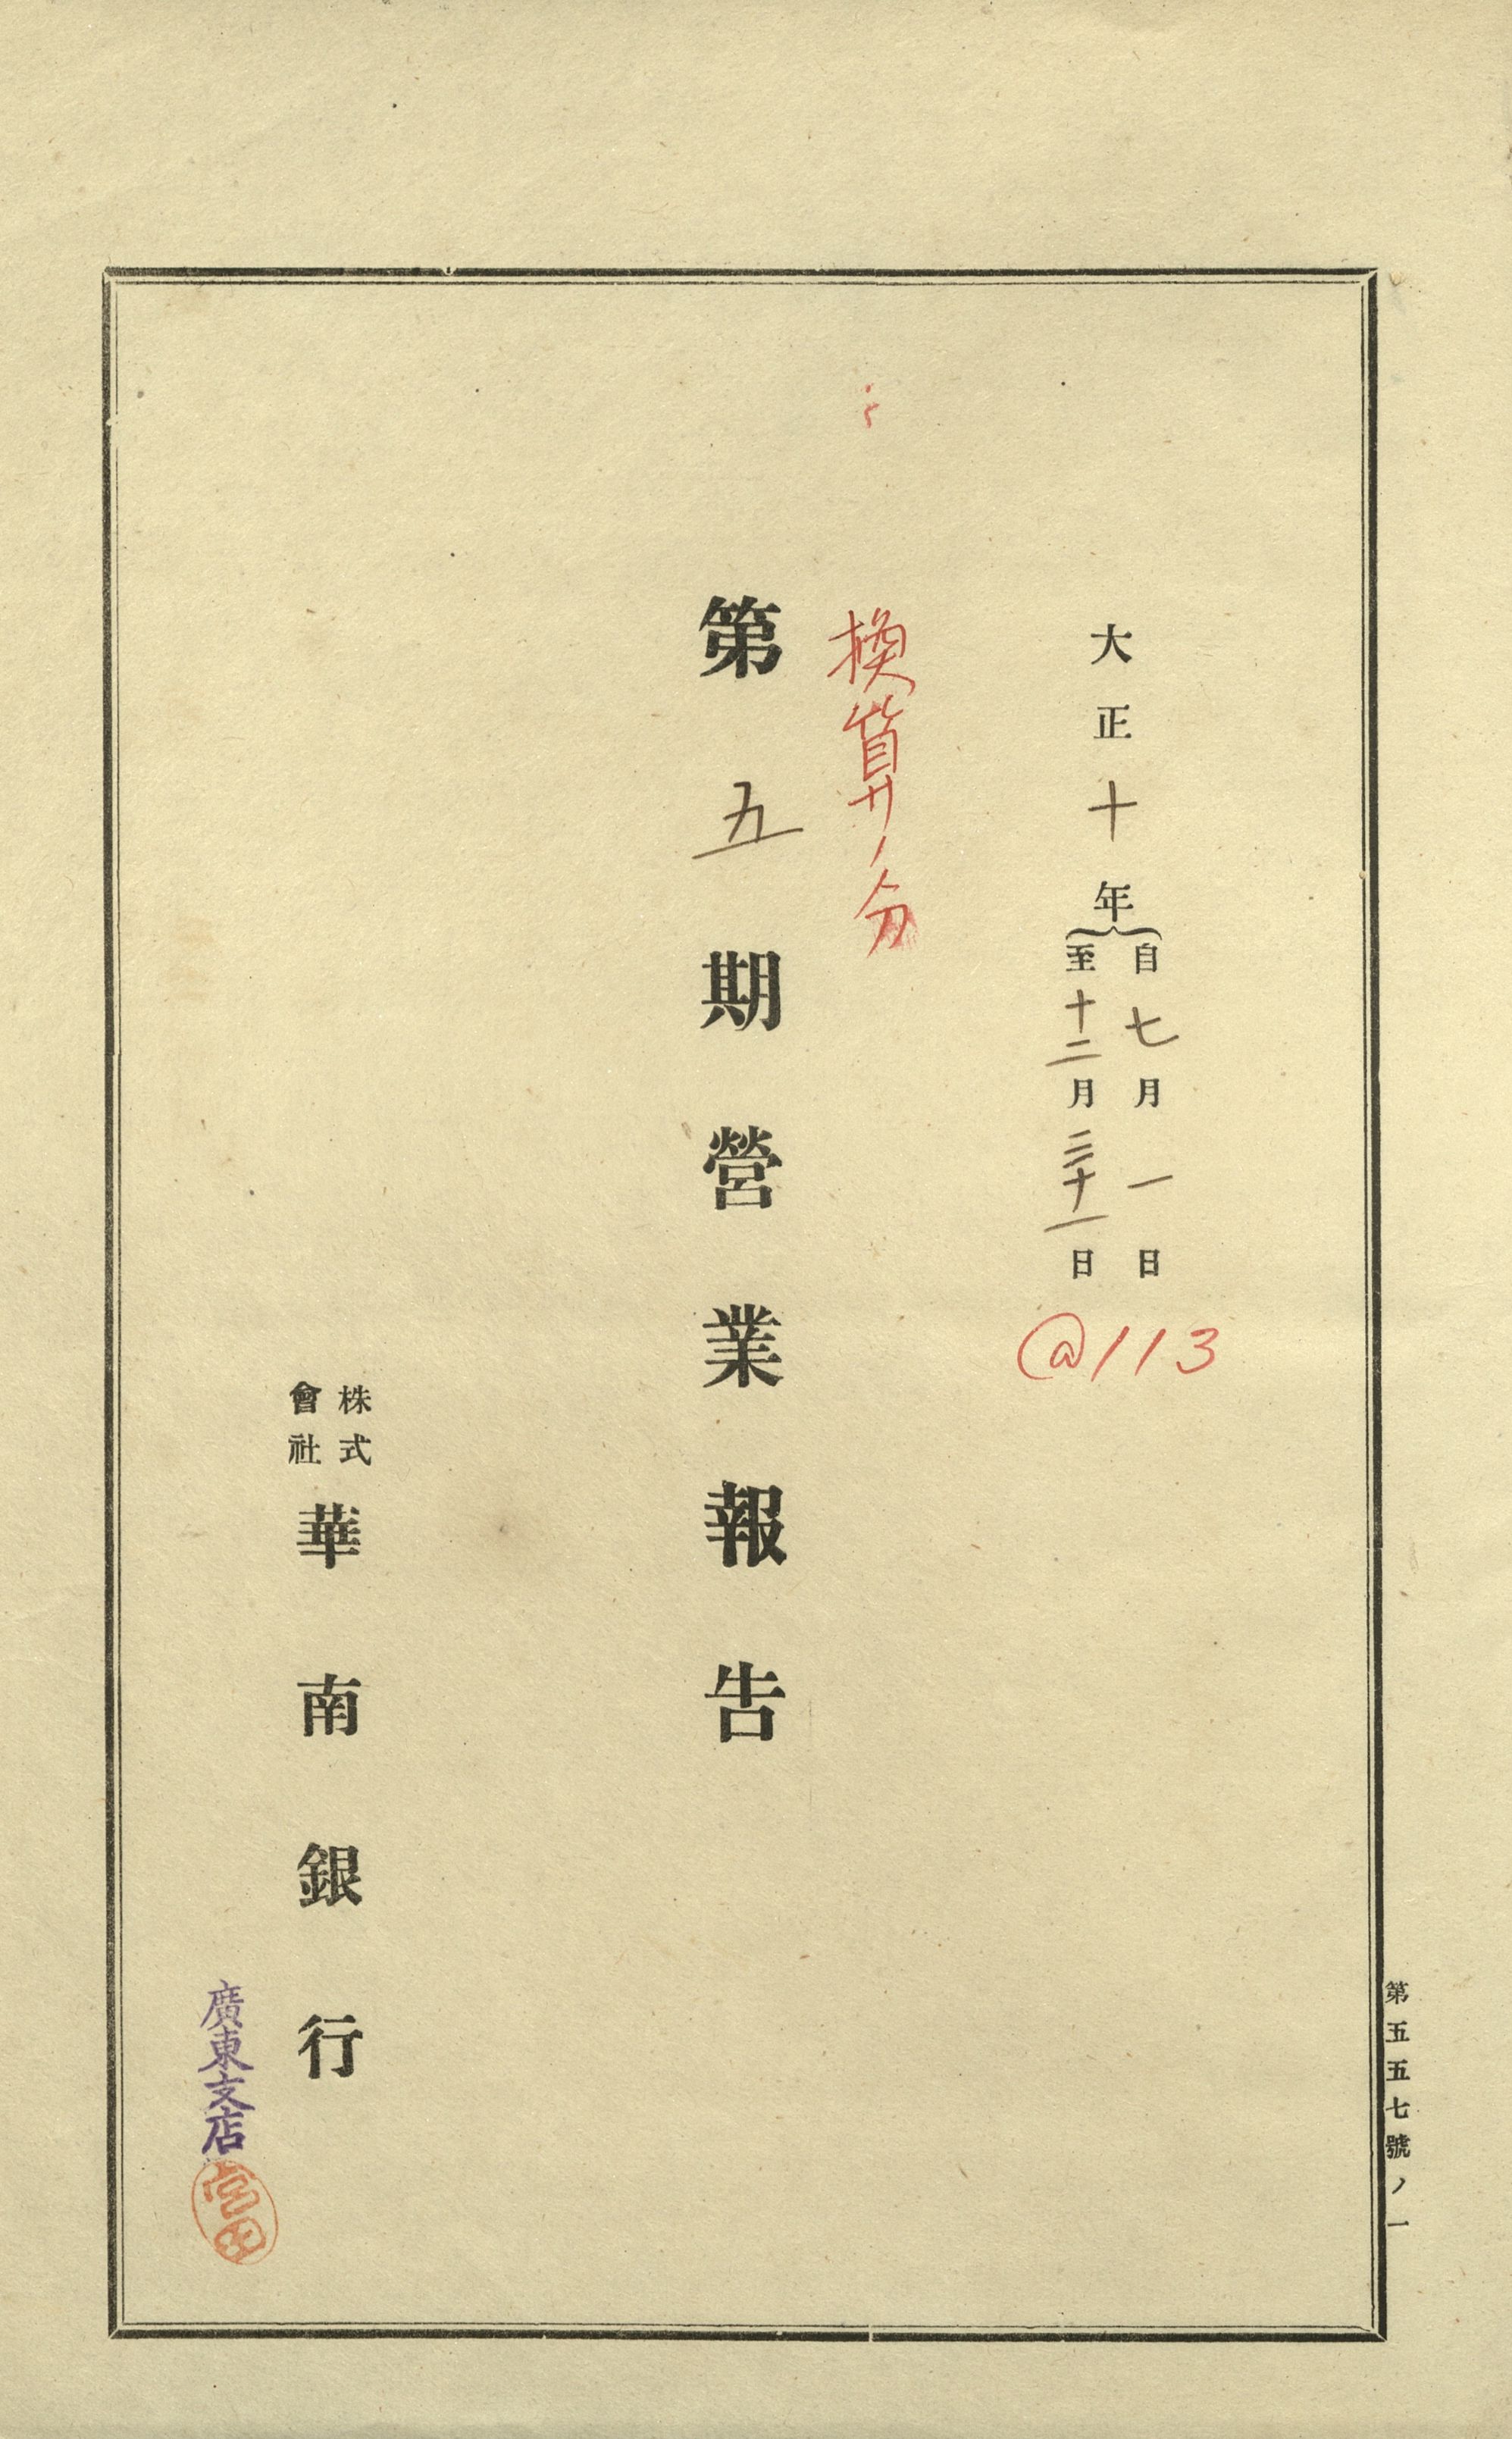 大正十年
自七月一日
至十二月三十一日
@113
換算ノ分
第五期營業報告
株式
會社
華南銀行
廣東支店
宮田
第五五七號ノ一